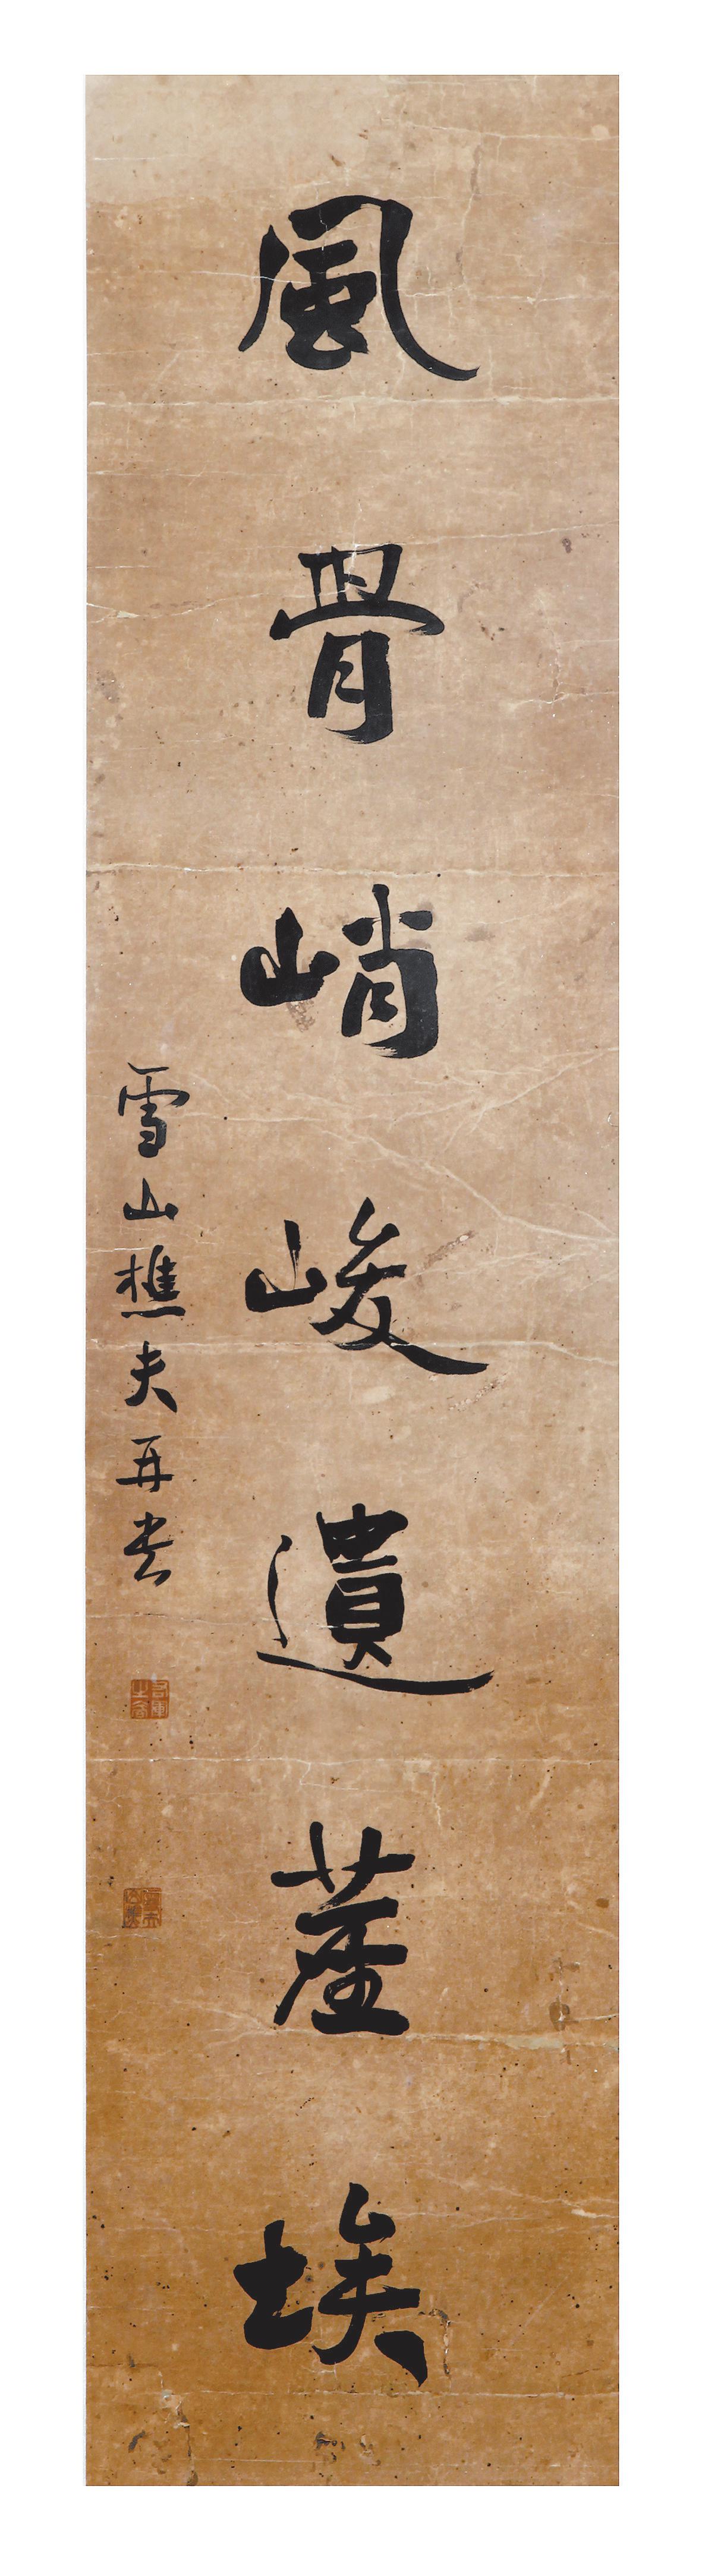 風骨峭峻遺塵埃
雪山樵夫再書